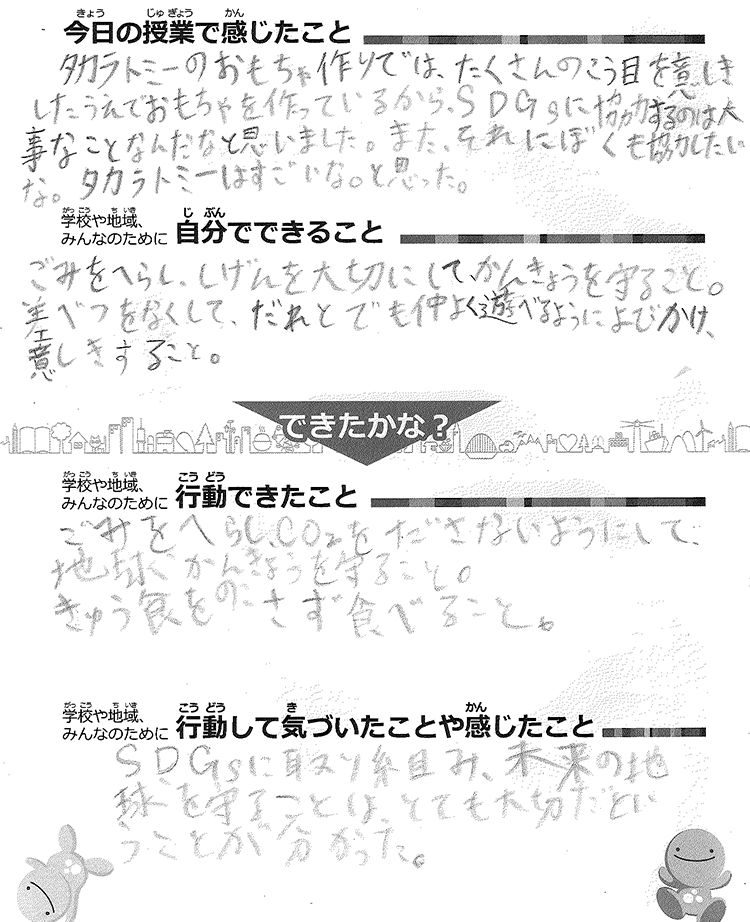 今日の授業で感じたこと
タカラトミーのおもちゃ作りでは、たくさんのこう目を意しき
したうえでおもちゃを作っているから、SDGsに協力するのは大
事なことなんだなと思いました。また、それにぼくも協力したい
な。タカラトミーはすごいな。と思った。
学校や地域、
みんなのために 自分でできること
ごみをへらし、しげんを大切にして、かんきょうを守ること。
差べつをなくして、だれとでも仲よく遊べるようによびかけ、
意しきすること。
できたかな?
学校や地域、
みんなのために 行動できたこと
ごみをへらし、CO₂をださないようにして、
地球かんきょうを守ること。
きゅう食をのこさず食べること。
学校や地域、
みんなのために 行動して気づいたことや感じたこと
SDGsに取り組み、未来の地
球を守ることは、とても大切だとい
うことが分かった。